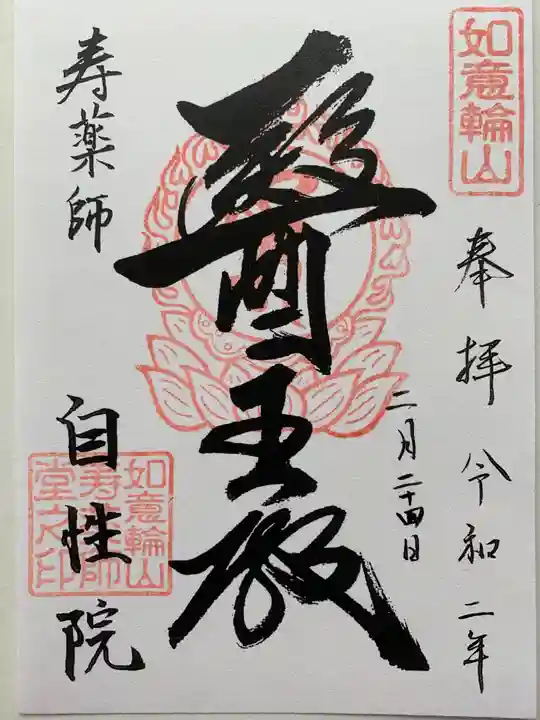 如意輪山
奉拝 令和二年
二月二十四日
醫王殿
寿薬師
自性院
如意輪山
寿薬師
堂之印